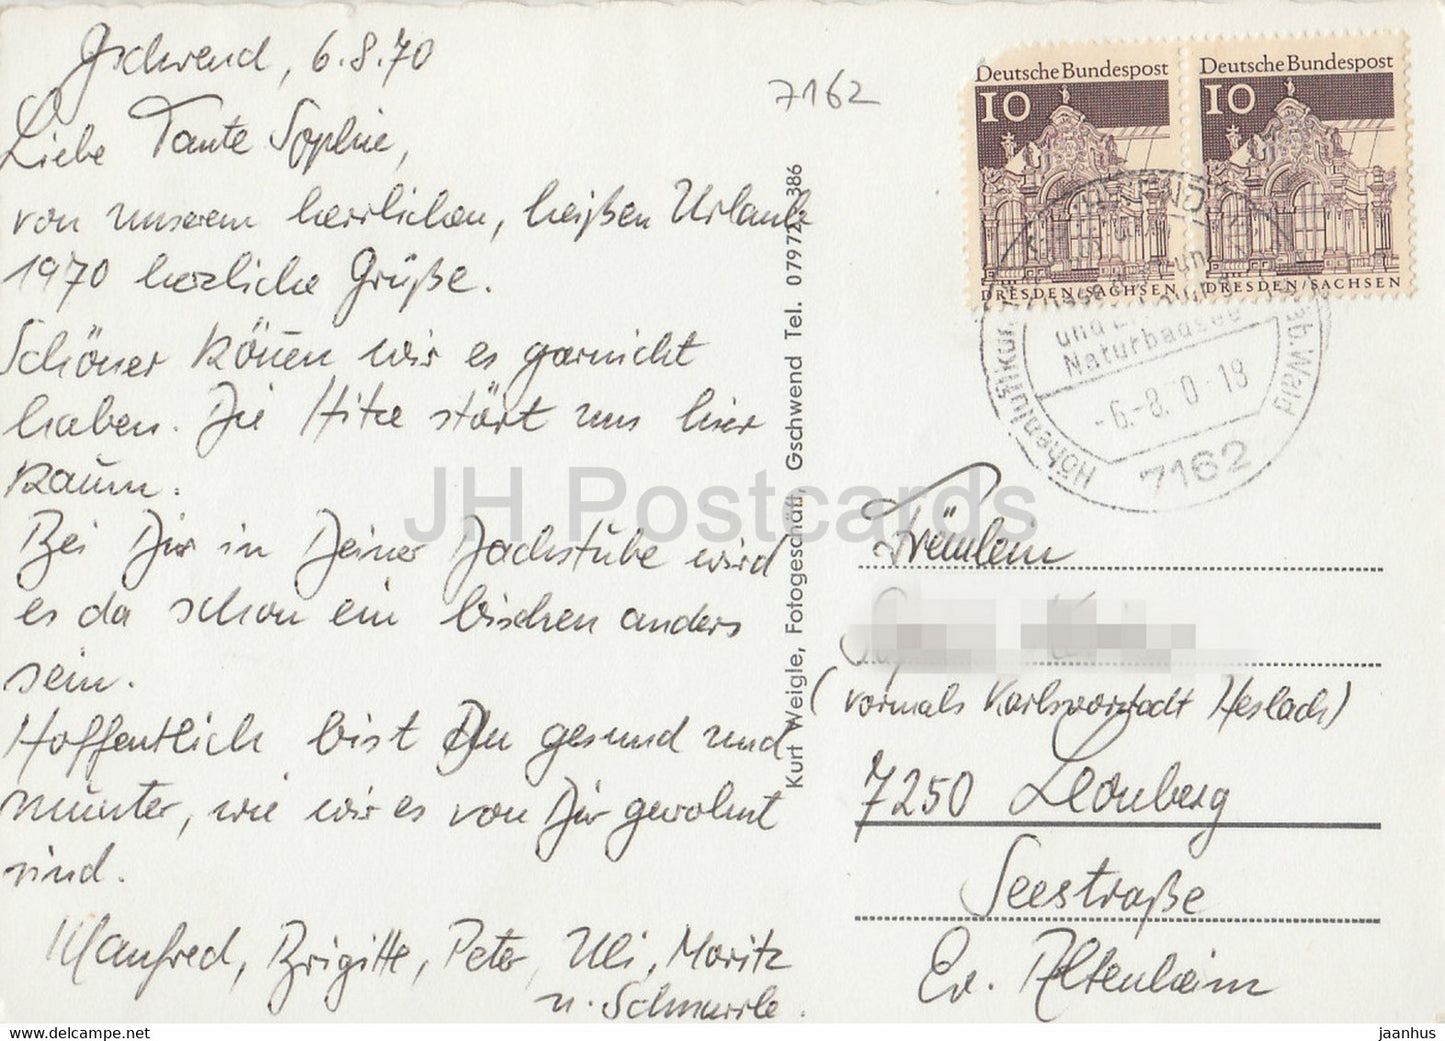 Gschwend, 6.8.70
Liebe Tante Sophie,
von unserem herrlichen, heißen Urlaub
1970 herzliche Grüße.
Schöner können wir es garnicht
haben. Die Hitze stört uns hier
kaum.
Bei Dir in Deiner Dachstube wird
es da schon ein bischen anders
sein.
Hoffentlich bist Du gesund und
munter, wie wir es von Dir gewohnt
sind.
Manfred, Brigitte, Peter, Uli, Moritz
u. Schnurrle.
7162
Kurt Weigle, Fotogeschäft, Gschwend Tel. 07972/386
Deutsche Bundespost
10
DRESDEN/SACHSEN
Deutsche Bundespost
10
DRESDEN/SACHSEN
und
Naturbadesee
-6.-8. 0-18
Höhenluftkur
Wald
7162
Fräulein
(vormals Karlsvorstadt Heslach)
7250 Leonberg
Seestraße
Ev. Altenheim
JH Postcards
jaanhus